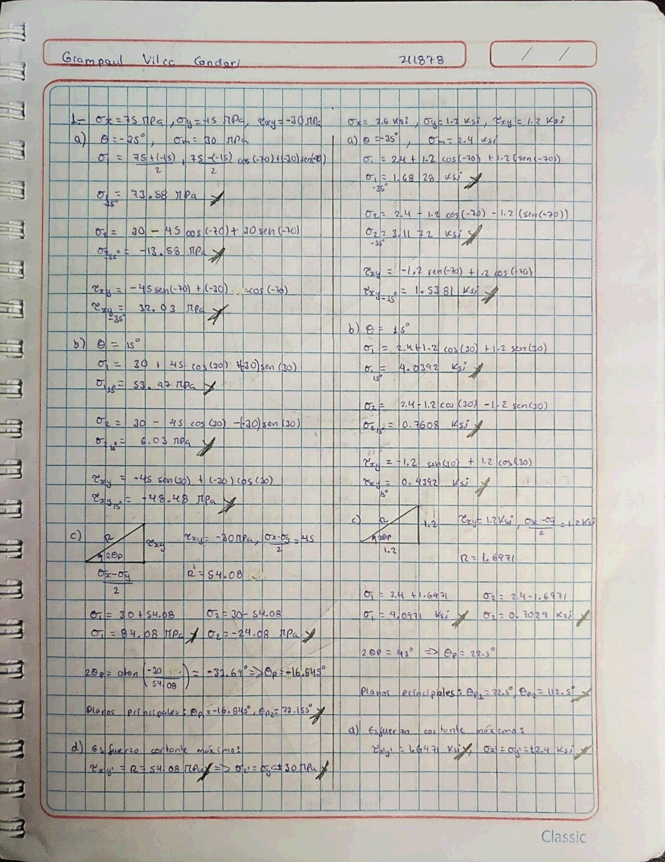 Grampaul Vilca Condori 211878
1.- σx = 75 MPa, σy = -15 MPa, τxy = -30 MPa
a) θ = -35°, σm = 30 MPa
σ1 = 75+(-15)/2 + 75-(-15)/2 cos(-70)+(-30)sen(-70)
σ1 -35° = 73.58 MPa
σ2 = 30 - 45 cos(-70) + 30 sen(-70)
σ2 -35° = -13.58 MPa
τxy = -45 sen(-70) + (-30) cos(-70)
τxy -35° = 32.03 MPa
b) θ = 15°
σ1 = 30 + 45 cos(30) + (-30) sen(30)
σ1 15° = 53.97 MPa
σ2 = 30 - 45 cos(30) - (-30) sen(30)
σ2 15° = 6.03 MPa
τxy = -45 sen(30) + (-30) cos(30)
τxy 15° = -48.48 MPa
c) R τxy 2θp σx-σy/2
τxy = -30 MPa, σx-σy/2 = 45
R = 54.08
σ1 = 30 + 54.08 σ2 = 30 - 54.08
σ1 = 84.08 MPa σ2 = -24.08 MPa
2θp = atan(-30/54.08) = -33.69° => θp = -16.845°
Planos principales: θp1 = -16.845°, θp2 = 73.155°
d) Esfuerzo cortante máximo:
τxy' = R = 54.08 MPa => σx' = σy' = 30 MPa
σx = 3.6 Ksi, σy = 1.2 Ksi, τxy = 1.2 Ksi
a) θ = -35°, σm = 2.4 Ksi
σ1 = 2.4 + 1.2 cos(-70) + 1.2 (sen(-70))
σ1 -35° = 1.6828 Ksi
σ2 = 2.4 - 1.2 cos(-70) - 1.2 (sen(-70))
σ2 -35° = 3.1172 Ksi
τxy = -1.2 sen(-70) + 1.2 cos(-70)
τxy -35° = 1.5381 Ksi
b) θ = 15°
σ1 = 2.4 + 1.2 cos(30) + 1.2 sen(30)
σ1 15° = 4.0392 Ksi
σ2 = 2.4 - 1.2 cos(30) - 1.2 sen(30)
σ2 15° = 0.7608 Ksi
τxy = -1.2 sen(30) + 1.2 cos(30)
τxy 15° = 0.4392 Ksi
c) R 1.2 2θp 1.2
τxy = 1.2 Ksi, σx-σy/2 = 1.2 Ksi
R = 1.6971
σ1 = 2.4 + 1.6971 σ2 = 2.4 - 1.6971
σ1 = 4.0971 Ksi σ2 = 0.7029 Ksi
2θp = 45° => θp = 22.5°
Planos principales: θp1 = 22.5°, θp2 = 112.5°
d) Esfuerzo cortante máximo:
τxy' = Ksi, σx' = σy' = 2.4 Ksi
Classic